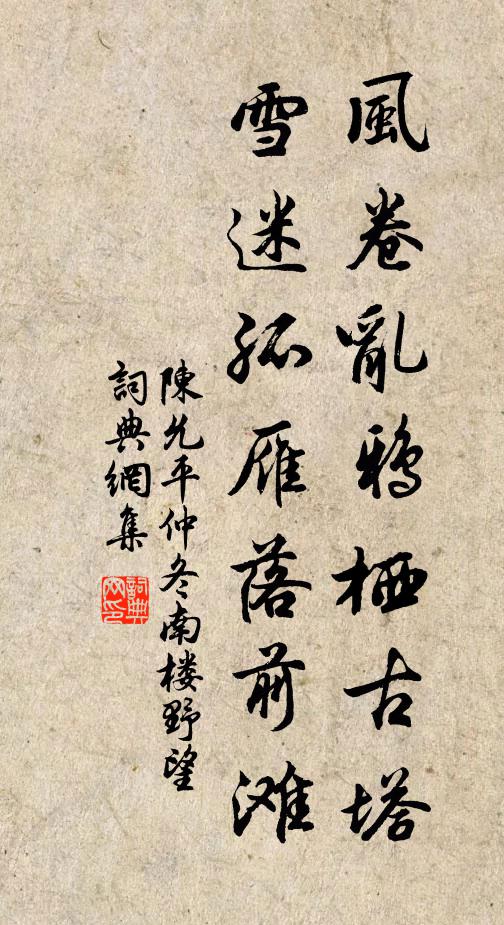 風卷亂鴉栖古塔
雪迷孤雁落前滩
陳允平仲冬南楼野望
詞典網集
詞典网印